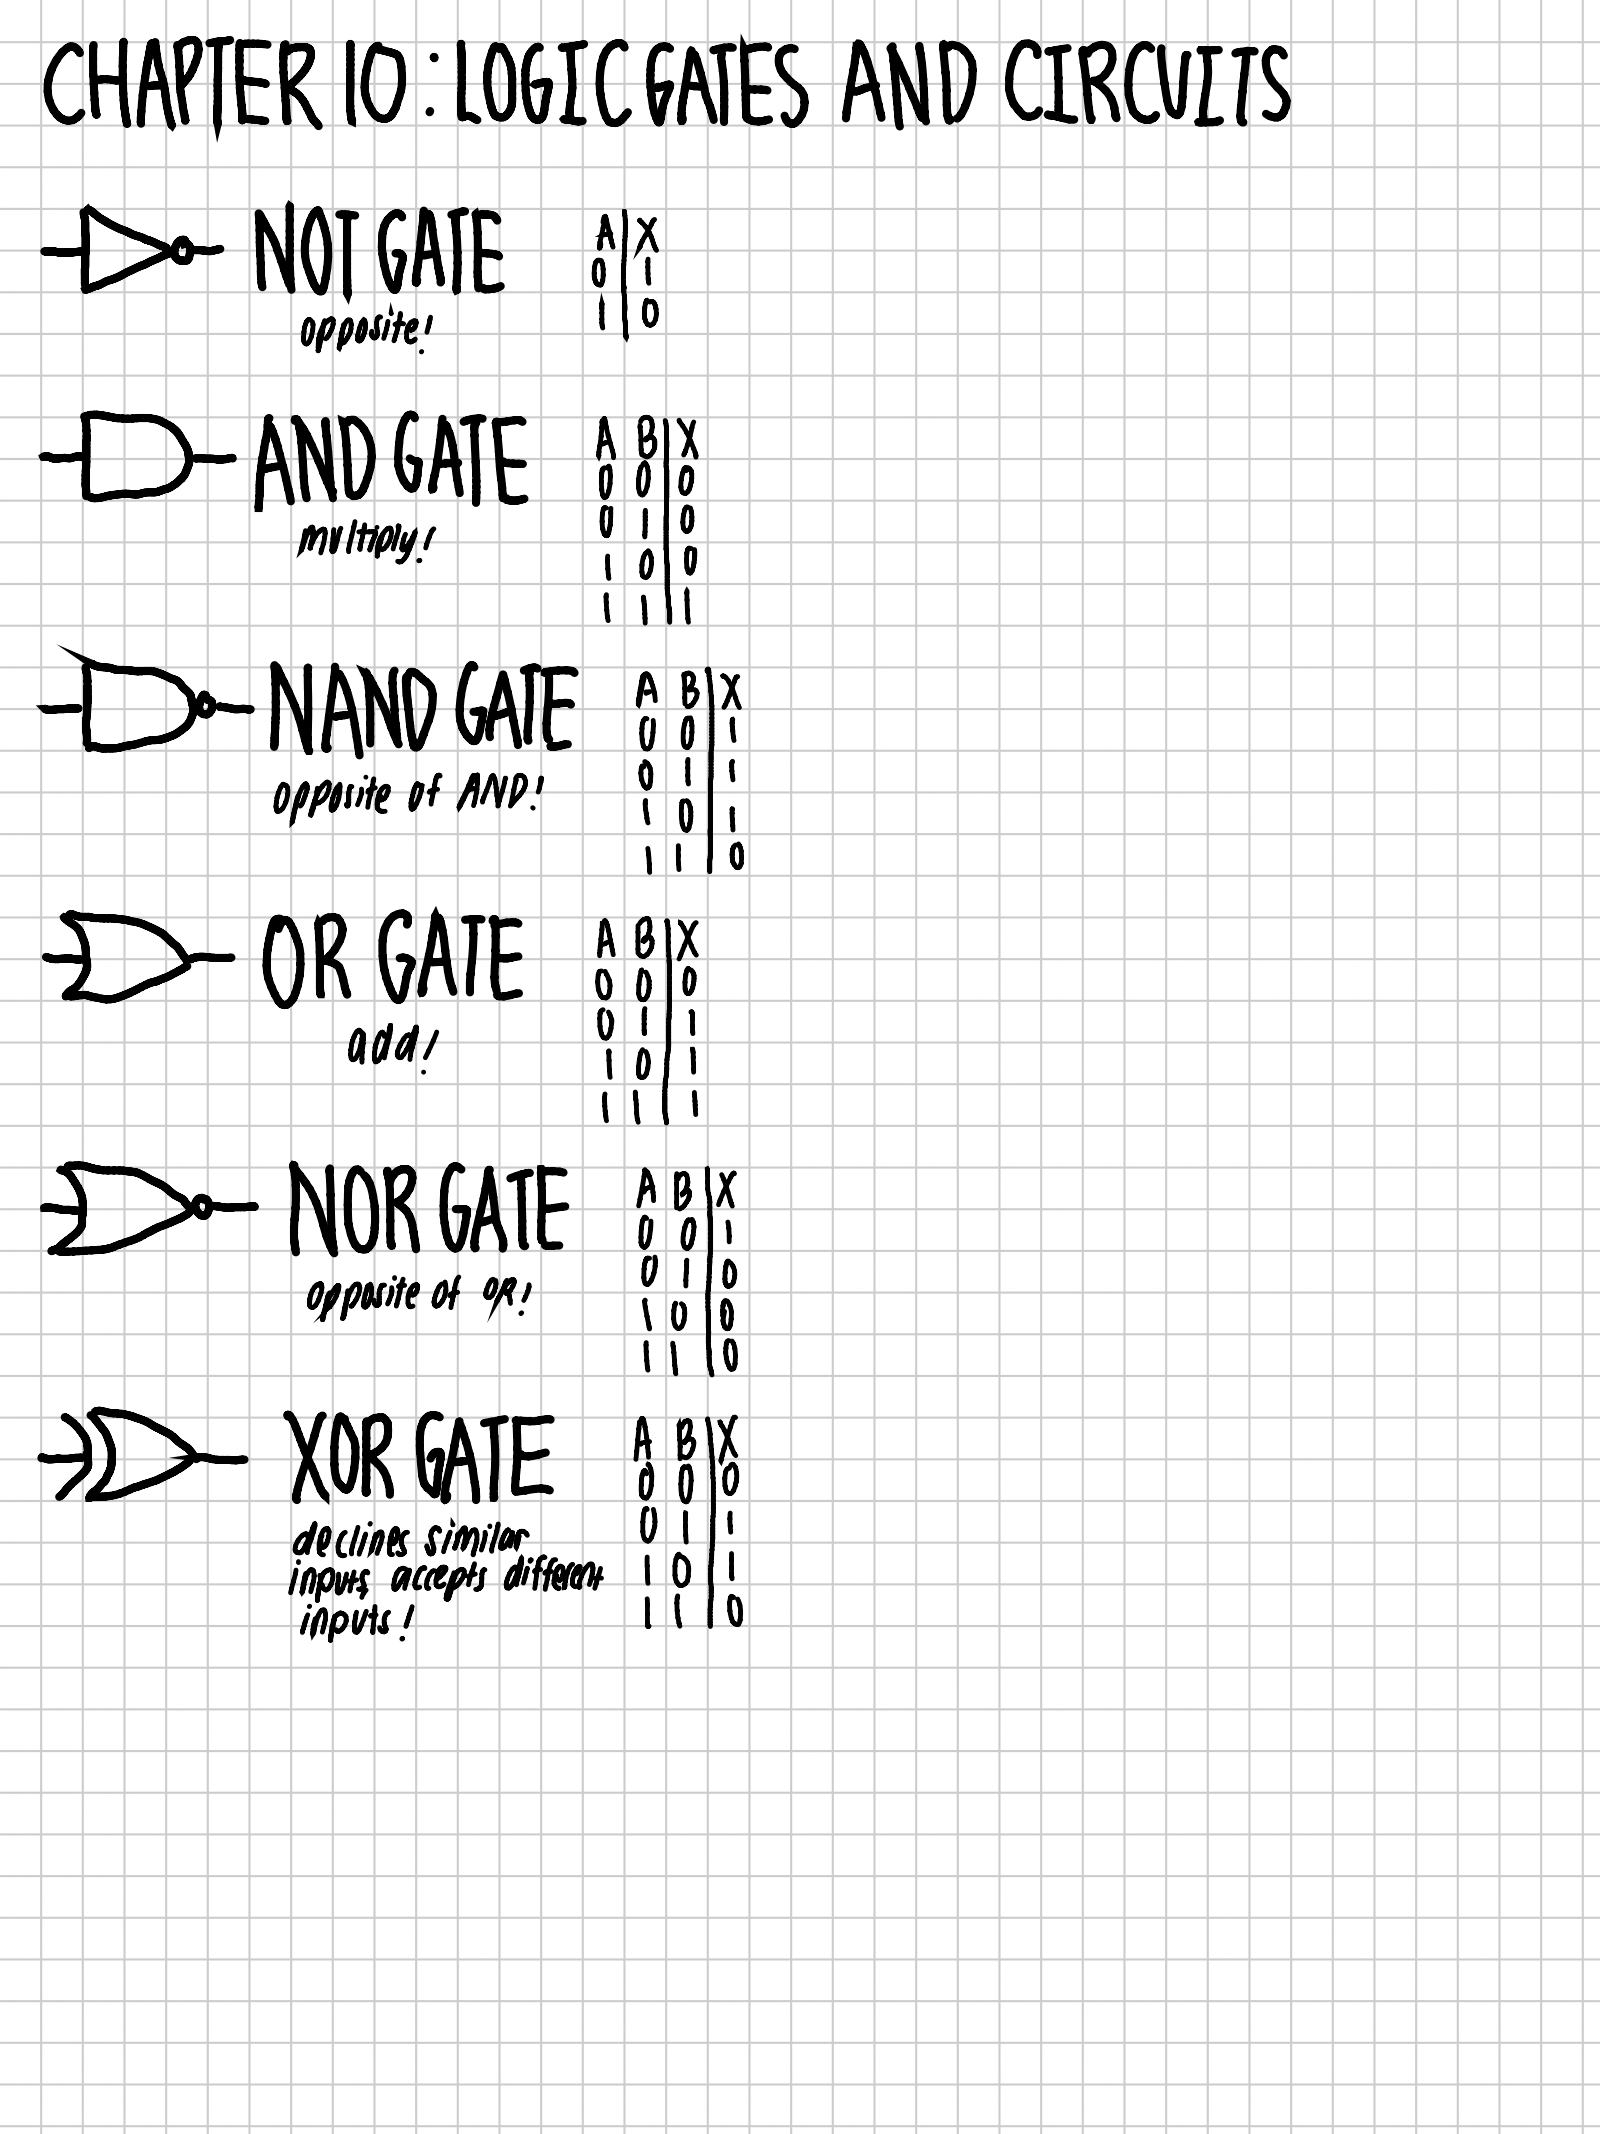 CHAPTER 10: LOGIC GATES AND CIRCUITS
NOT GATE
opposite!
A X
0 1
1 0
AND GATE
multiply!
A B X
0 0 0
0 1 0
1 0 0
1 1 1
NAND GATE
opposite of AND!
A B X
0 0 1
0 1 1
1 0 1
1 1 0
OR GATE
add!
A B X
0 0 0
0 1 1
1 0 1
1 1 1
NOR GATE
opposite of OR!
A B X
0 0 1
0 1 0
1 0 0
1 1 0
XOR GATE
declines similar
inputs, accepts different
inputs!
A B X
0 0 0
0 1 1
1 0 1
1 1 0